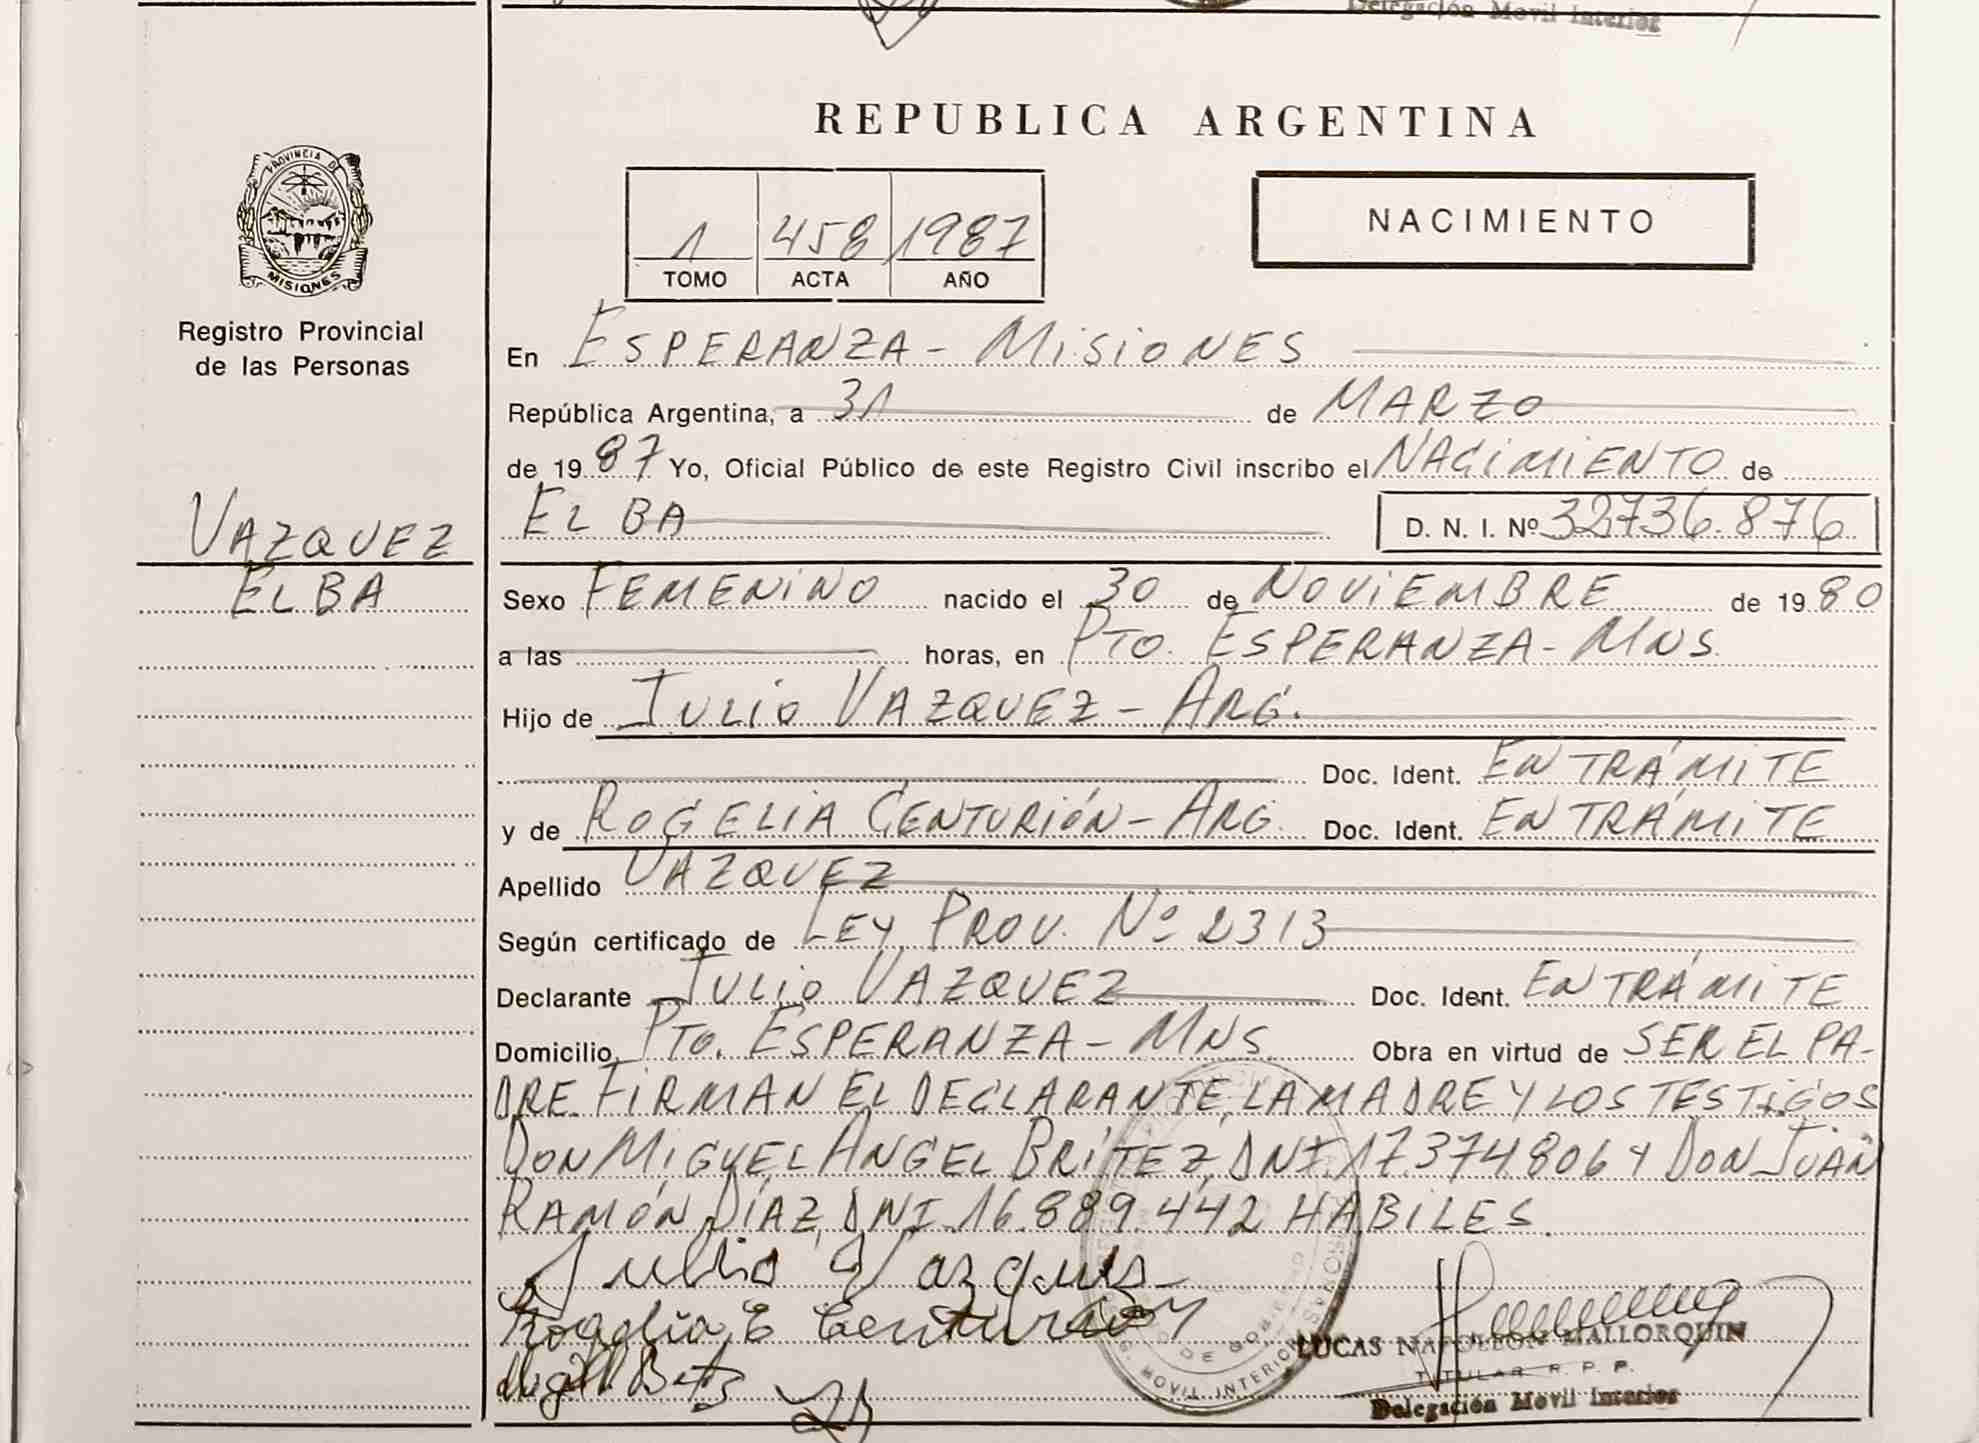 Delegación Movil Interior
REPUBLICA ARGENTINA
PROVINCIA DE
MISIONES
Registro Provincial
de las Personas
1 458 1987
TOMO ACTA AÑO
NACIMIENTO
En ESPERANZA - MISIONES
República Argentina, a 31 de MARZO
de 1987 Yo, Oficial Público de este Registro Civil inscribo el NACIMIENTO de
VAZQUEZ
ELBA
ELBA D. N. I. Nº 32736.876
Sexo FEMENINO nacido el 30 de NOVIEMBRE de 1980
a las horas, en PTO. ESPERANZA - MNS.
Hijo de JULIO VAZQUEZ - ARG.
Doc. Ident. EN TRÁMITE
y de ROGELIA CENTURIÓN - ARG. Doc. Ident. EN TRÁMITE
Apellido VAZQUEZ
Según certificado de LEY PROV. Nº 2313
Declarante JULIO VAZQUEZ Doc. Ident. EN TRÁMITE
Domicilio PTO. ESPERANZA - MNS. Obra en virtud de SER EL PA-
DRE. FIRMAN EL DECLARANTE, LA MADRE Y LOS TESTIGOS
DON MIGUEL ANGEL BRÍTEZ, DNI. 17.374806 Y DON JUAN
RAMÓN DÍAZ, DNI. 16.889.442 HABILES
Rogelia E Centurion
LUCAS NAPOLEON MALLORQUIN
TITULAR R. P. P.
Delegación Movil Interior
MOVIL INTERIOR